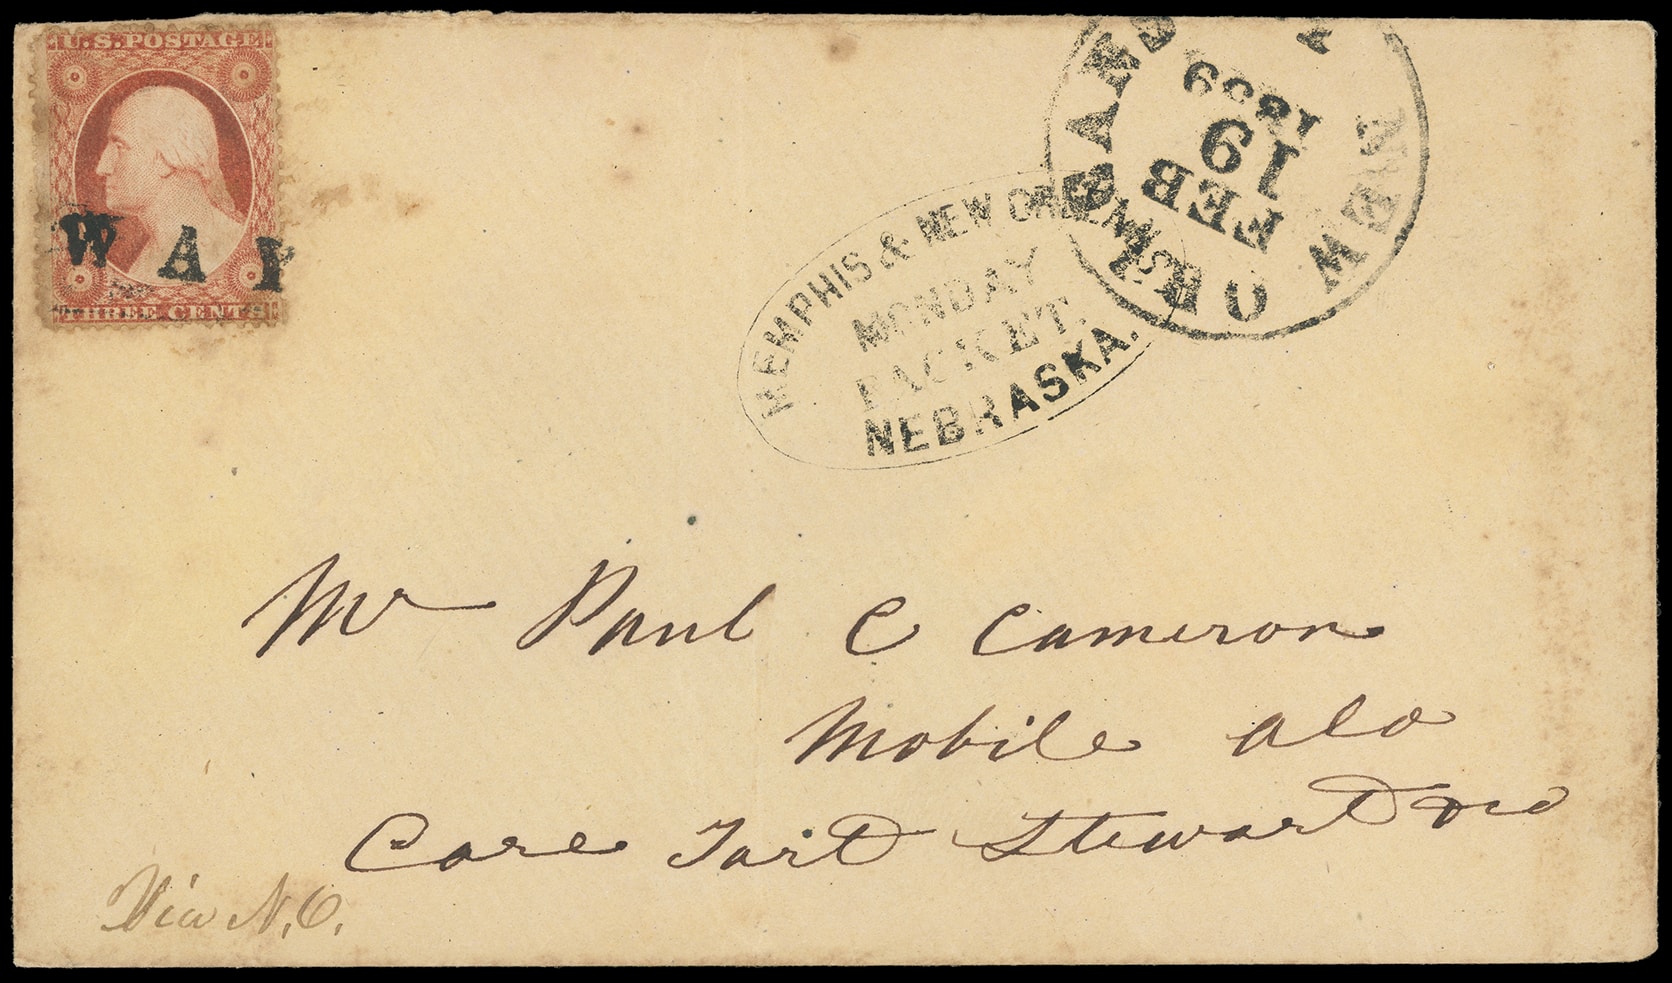 U.S. POSTAGE
WAY
THREE CENTS
NEW ORLEANS
FEB
19
1859
MEMPHIS & NEW ORLEANS
MONDAY
PACKET.
NEBRASKA.
Mr Paul C Cameron
Mobile ala
Care Tart Stewart
Via N.O.